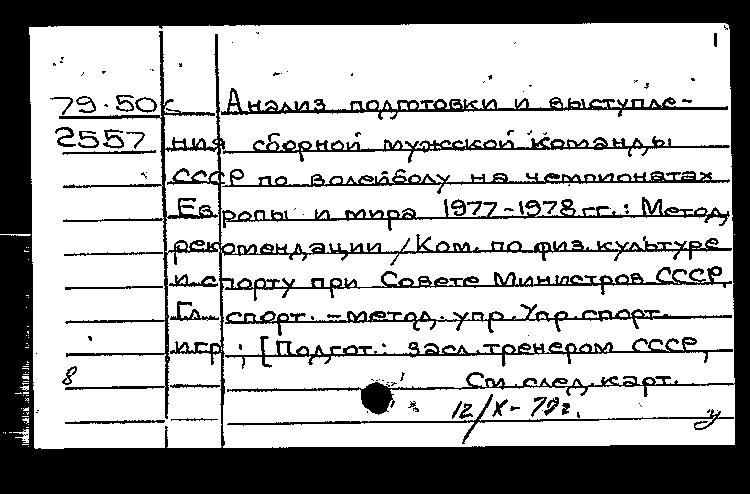 1
79-50с Анализ подготовки и выступле-
2557 ния сборной мужской команды
СССР по волейболу на чемпионатах
Европы и мира 1977-1978 гг.: Метод.
рекомендации / Ком. по физ. культуре
и спорту при Совете Министров СССР,
Гл. спорт.-метод. упр. Упр. спорт.
игр ; [Подгот.: засл. тренером СССР,
8 См. след. карт.
12/X-79г.